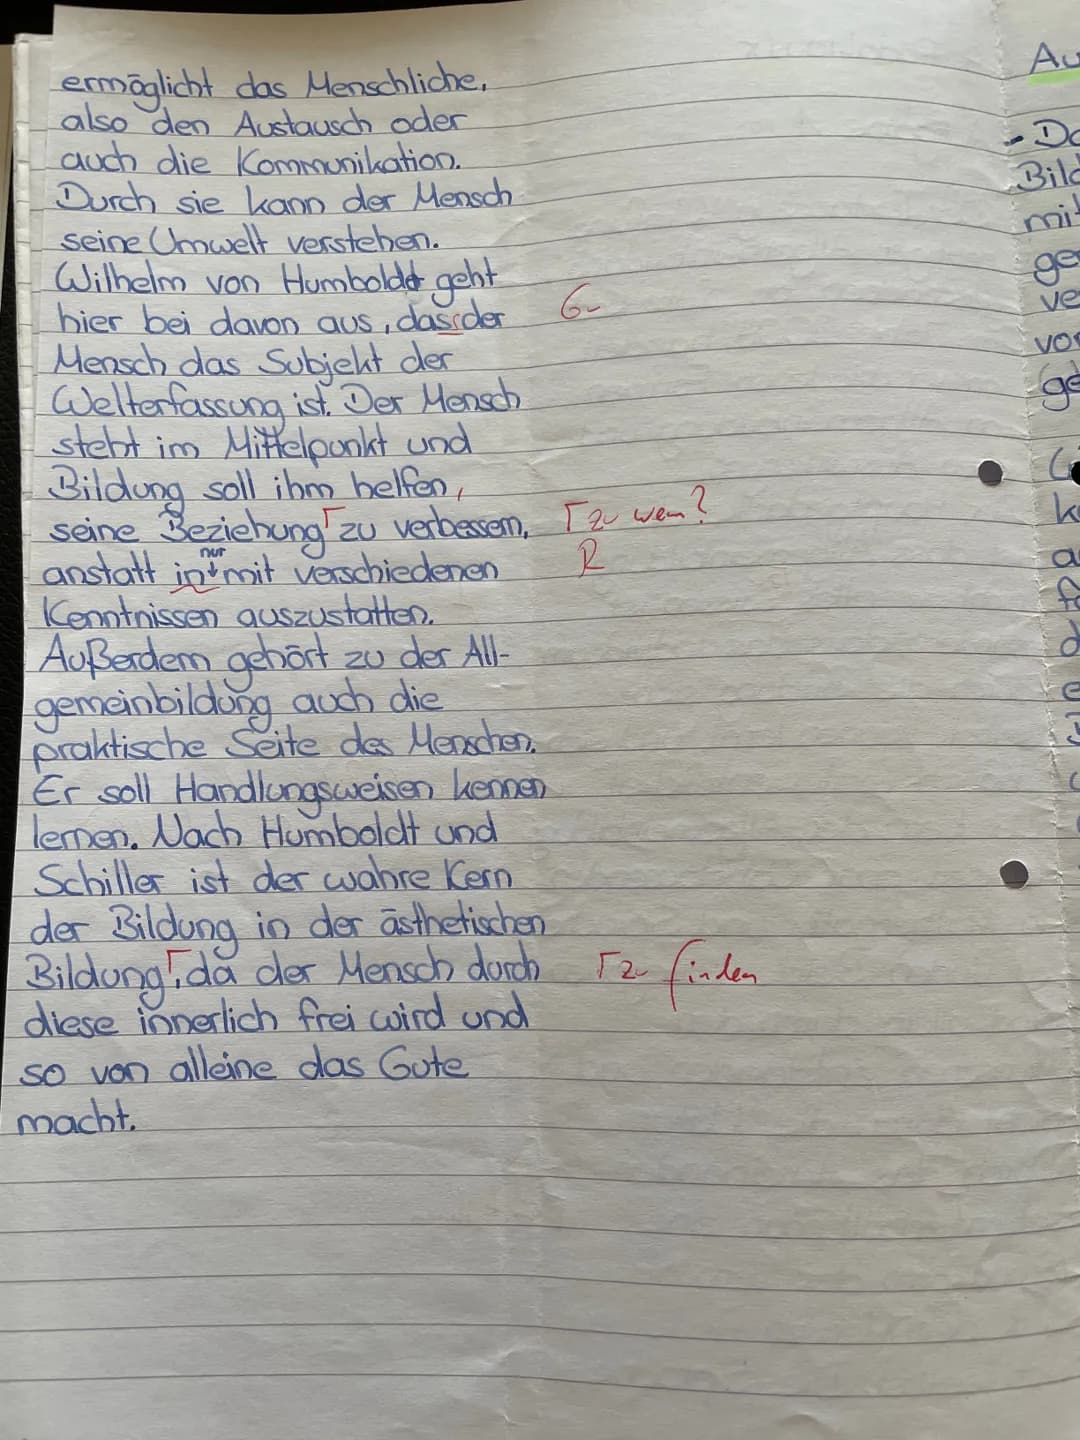 ermöglicht das Menschliche,
also den Austausch oder
auch die Kommunikation.
Durch sie kann der Mensch
seine Umwelt verstehen.
Wilhelm von Humboldt geht
hier bei davon aus, das der
Mensch das Subjekt der
Welterfassung ist. Der Mensch
steht im Mittelpunkt und
Bildung soll ihm helfen,
seine Beziehung zu verbessern,
Γ zu wem?
anstatt in nur mit verschiedenen
R
Kenntnissen auszustatten.
Außerdem gehört zu der All-
gemeinbildung auch die
praktische Seite des Menschen.
Er soll Handlungsweisen kennen
lernen. Nach Humboldt und
Schiller ist der wahre Kern
der Bildung in der ästhetischen
Bildung, da der Mensch durch
Γ zu finden
diese innerlich frei wird und
so von alleine das Gute
macht.
Au
- Da
Bild
mit
ge
ve
vor
ge